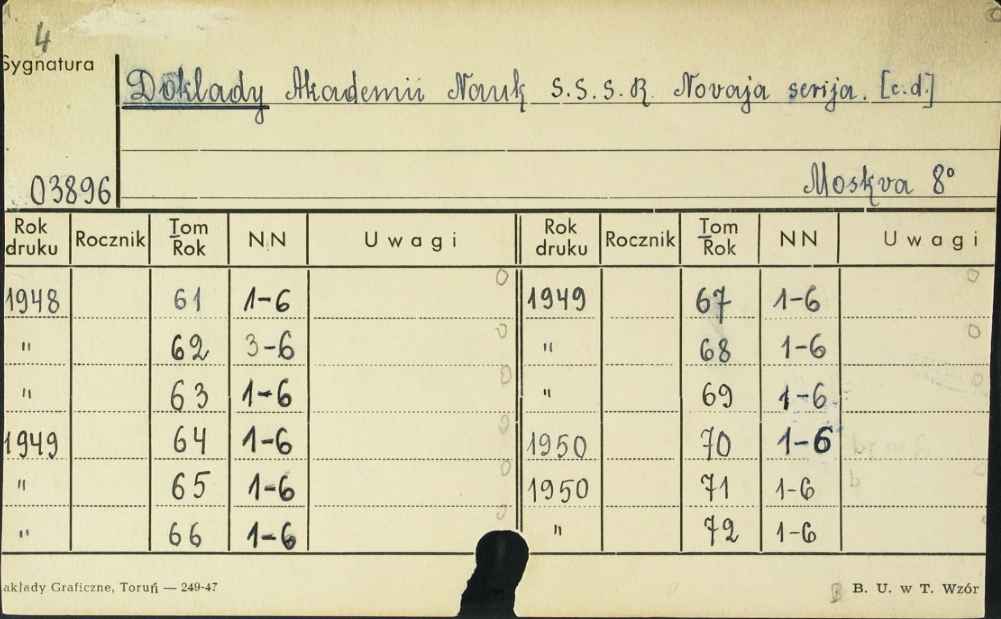 4
Sygnatura
Doklady Akademii Nauk S.S.S.R. Novaja serija. [c.d.]
03896
Moskva 8°
Rok druku Rocznik Tom Rok NN Uwagi Rok druku Rocznik Tom Rok NN Uwagi
1948 61 1-6 0 1949 67 1-6 0
" 62 3-6 0 " 68 1-6 0
" 63 1-6 0 " 69 1-6 0
1949 64 1-6 0 1950 70 1-6
" 65 1-6 0 1950 71 1-6
" 66 1-6 0 " 72 1-6
akłady Graficzne, Toruń — 249-47 B. U. w T. Wzór